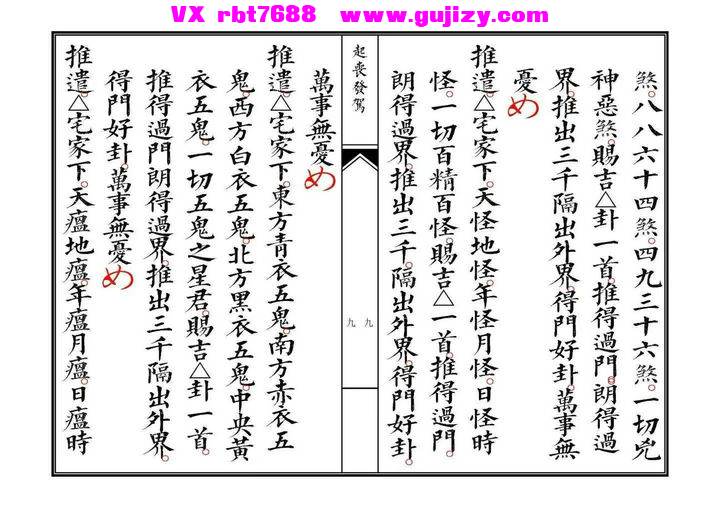 VX rbt7688 www.gujizy.com
煞。八八六十四煞。四九三十六煞。一切兇
神惡煞。賜吉△卦一首。推得過門。朗得過
界。推出三千隔出外界。得門好卦。萬事無
憂め
推遣△宅家下。天怪地怪。年怪月怪。日怪時
怪。一切百精百怪。賜吉△一首。推得過門。
朗得過界。推出三千。隔出外界。得門好卦。
起喪發駕
九九
萬事無憂め
推遣△宅家下。東方青衣五鬼。南方赤衣五
鬼。西方白衣五鬼。北方黑衣五鬼。中央黃
衣五鬼。一切五鬼之星君。賜吉△卦一首。
推得過門朗得過界。推出三千隔出外界。
得門好卦。萬事無憂め
推遣△宅家下。天瘟地瘟。年瘟月瘟。日瘟時